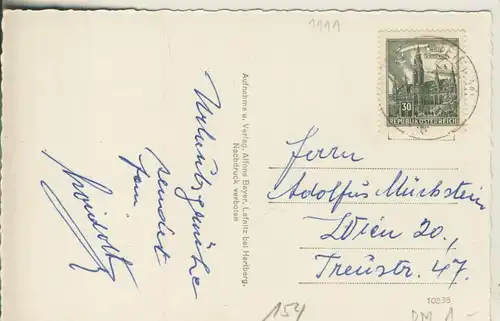 1111
Urlaubsgrüße
sendet
Fam.
30
REPUBLIK ÖSTERREICH
Aufnahme u. Verlag, Alfons Bayer, Lafnitz bei Hartberg.
Nachdruck verboten
Herrn
Adolfus Mückstein
Wien 20.,
Treustr. 47.
10535
154
DM 1.-